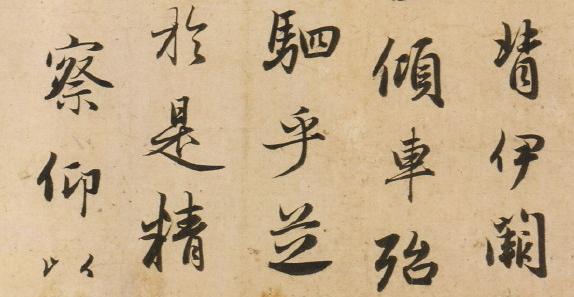 背伊闕
傾車殆
駟乎芝
於是精
察仰以